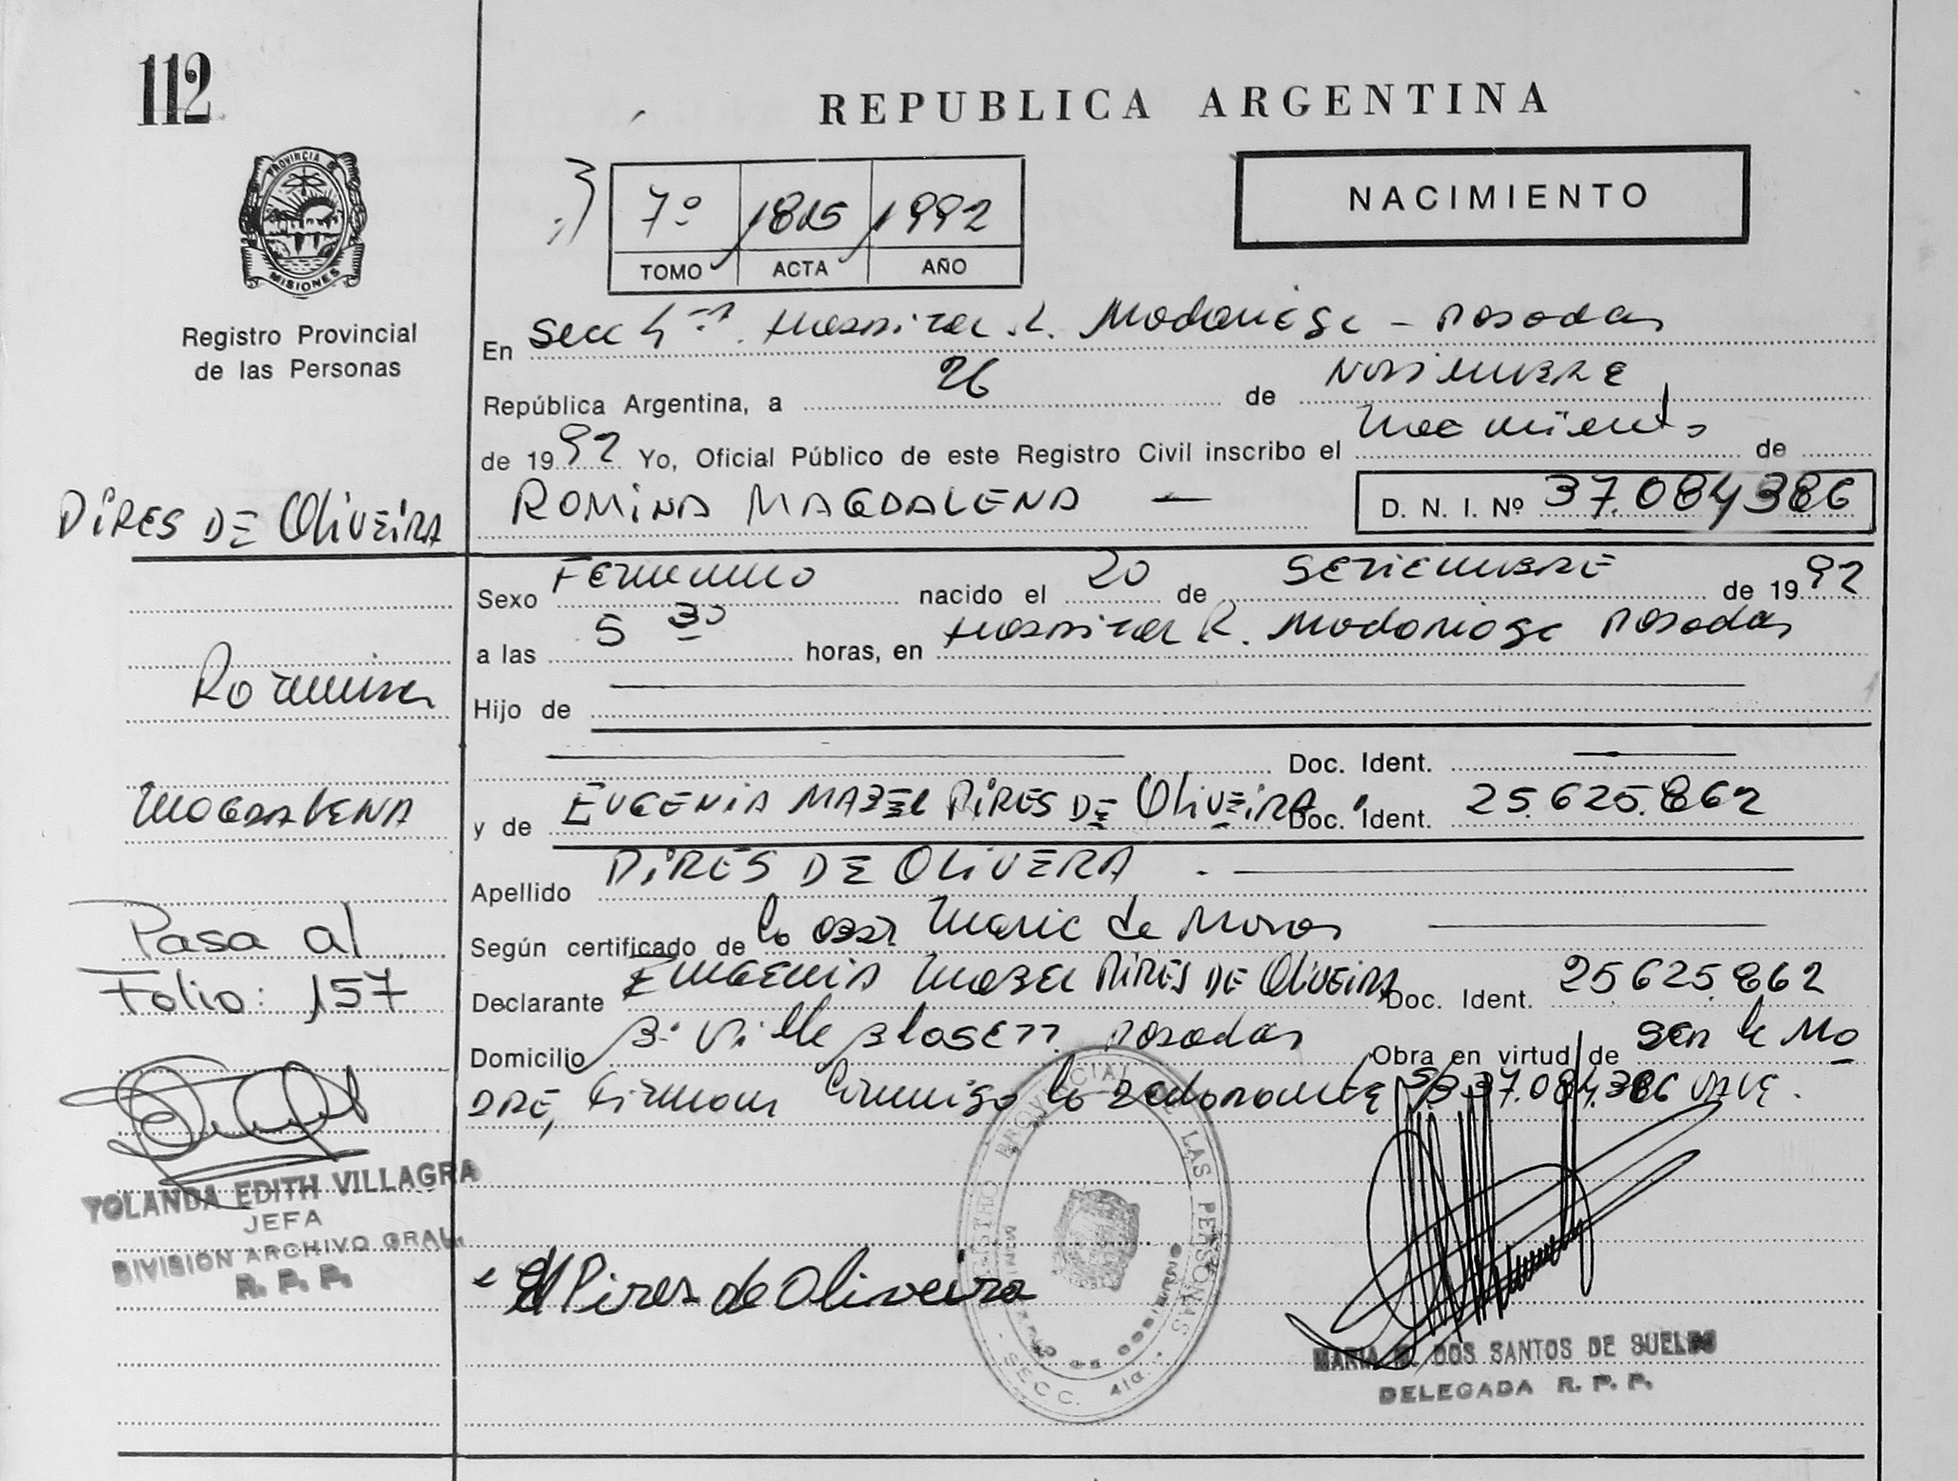 112
REPUBLICA ARGENTINA
NACIMIENTO
7º 1815 1992
TOMO ACTA AÑO
PROVINCIA DE
MISIONES
Registro Provincial
de las Personas
En Secc 4ta. Hospital R. Madariaga - Posadas
República Argentina, a 26 de Noviembre
de 1992 Yo, Oficial Público de este Registro Civil inscribo el Nacimiento de
PIRES DE OLIVEIRA
ROMINA MAGDALENA —
D. N. I. Nº 37.084386
Sexo Femenino nacido el 20 de SETIEMBRE de 1992
a las 5 30 horas, en Hospital R. Madariaga Posadas
Romina
Hijo de
Doc. Ident. —
MAGDALENA
y de EUGENIA MABEL PIRES DE OLIVEIRA Doc. Ident. 25.625.862
Apellido PIRES DE OLIVERA . —
Pasa al
Folio: 157
Según certificado de la obst Marie de Moras
Declarante EUGENIA MABEL PIRES DE OLIVEIRA Doc. Ident. 25625862
Domicilio Bº Villa Blosett Posadas Obra en virtud de Ser la MA
DRE, Firman Conmigo la declarante S/B 37.084.386 VALE.
YOLANDA EDITH VILLAGRA
JEFA
DIVISION ARCHIVO GRAL.
R. P. P.
E M Pires de Oliveira
REGISTRO PROVINCIAL DE LAS PERSONAS
SECC. 4ta.
MARIA DOS SANTOS DE SUELDO
DELEGADA R. P. P.